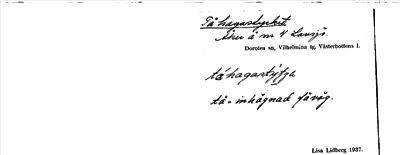 Tåhagastycket
Åker å nr 4 Lavsjö.
Dorotea sn, Vilhelmina tg. Västerbottens l.
tå- inhägnad fäväg.
Lisa Lidberg 1937.